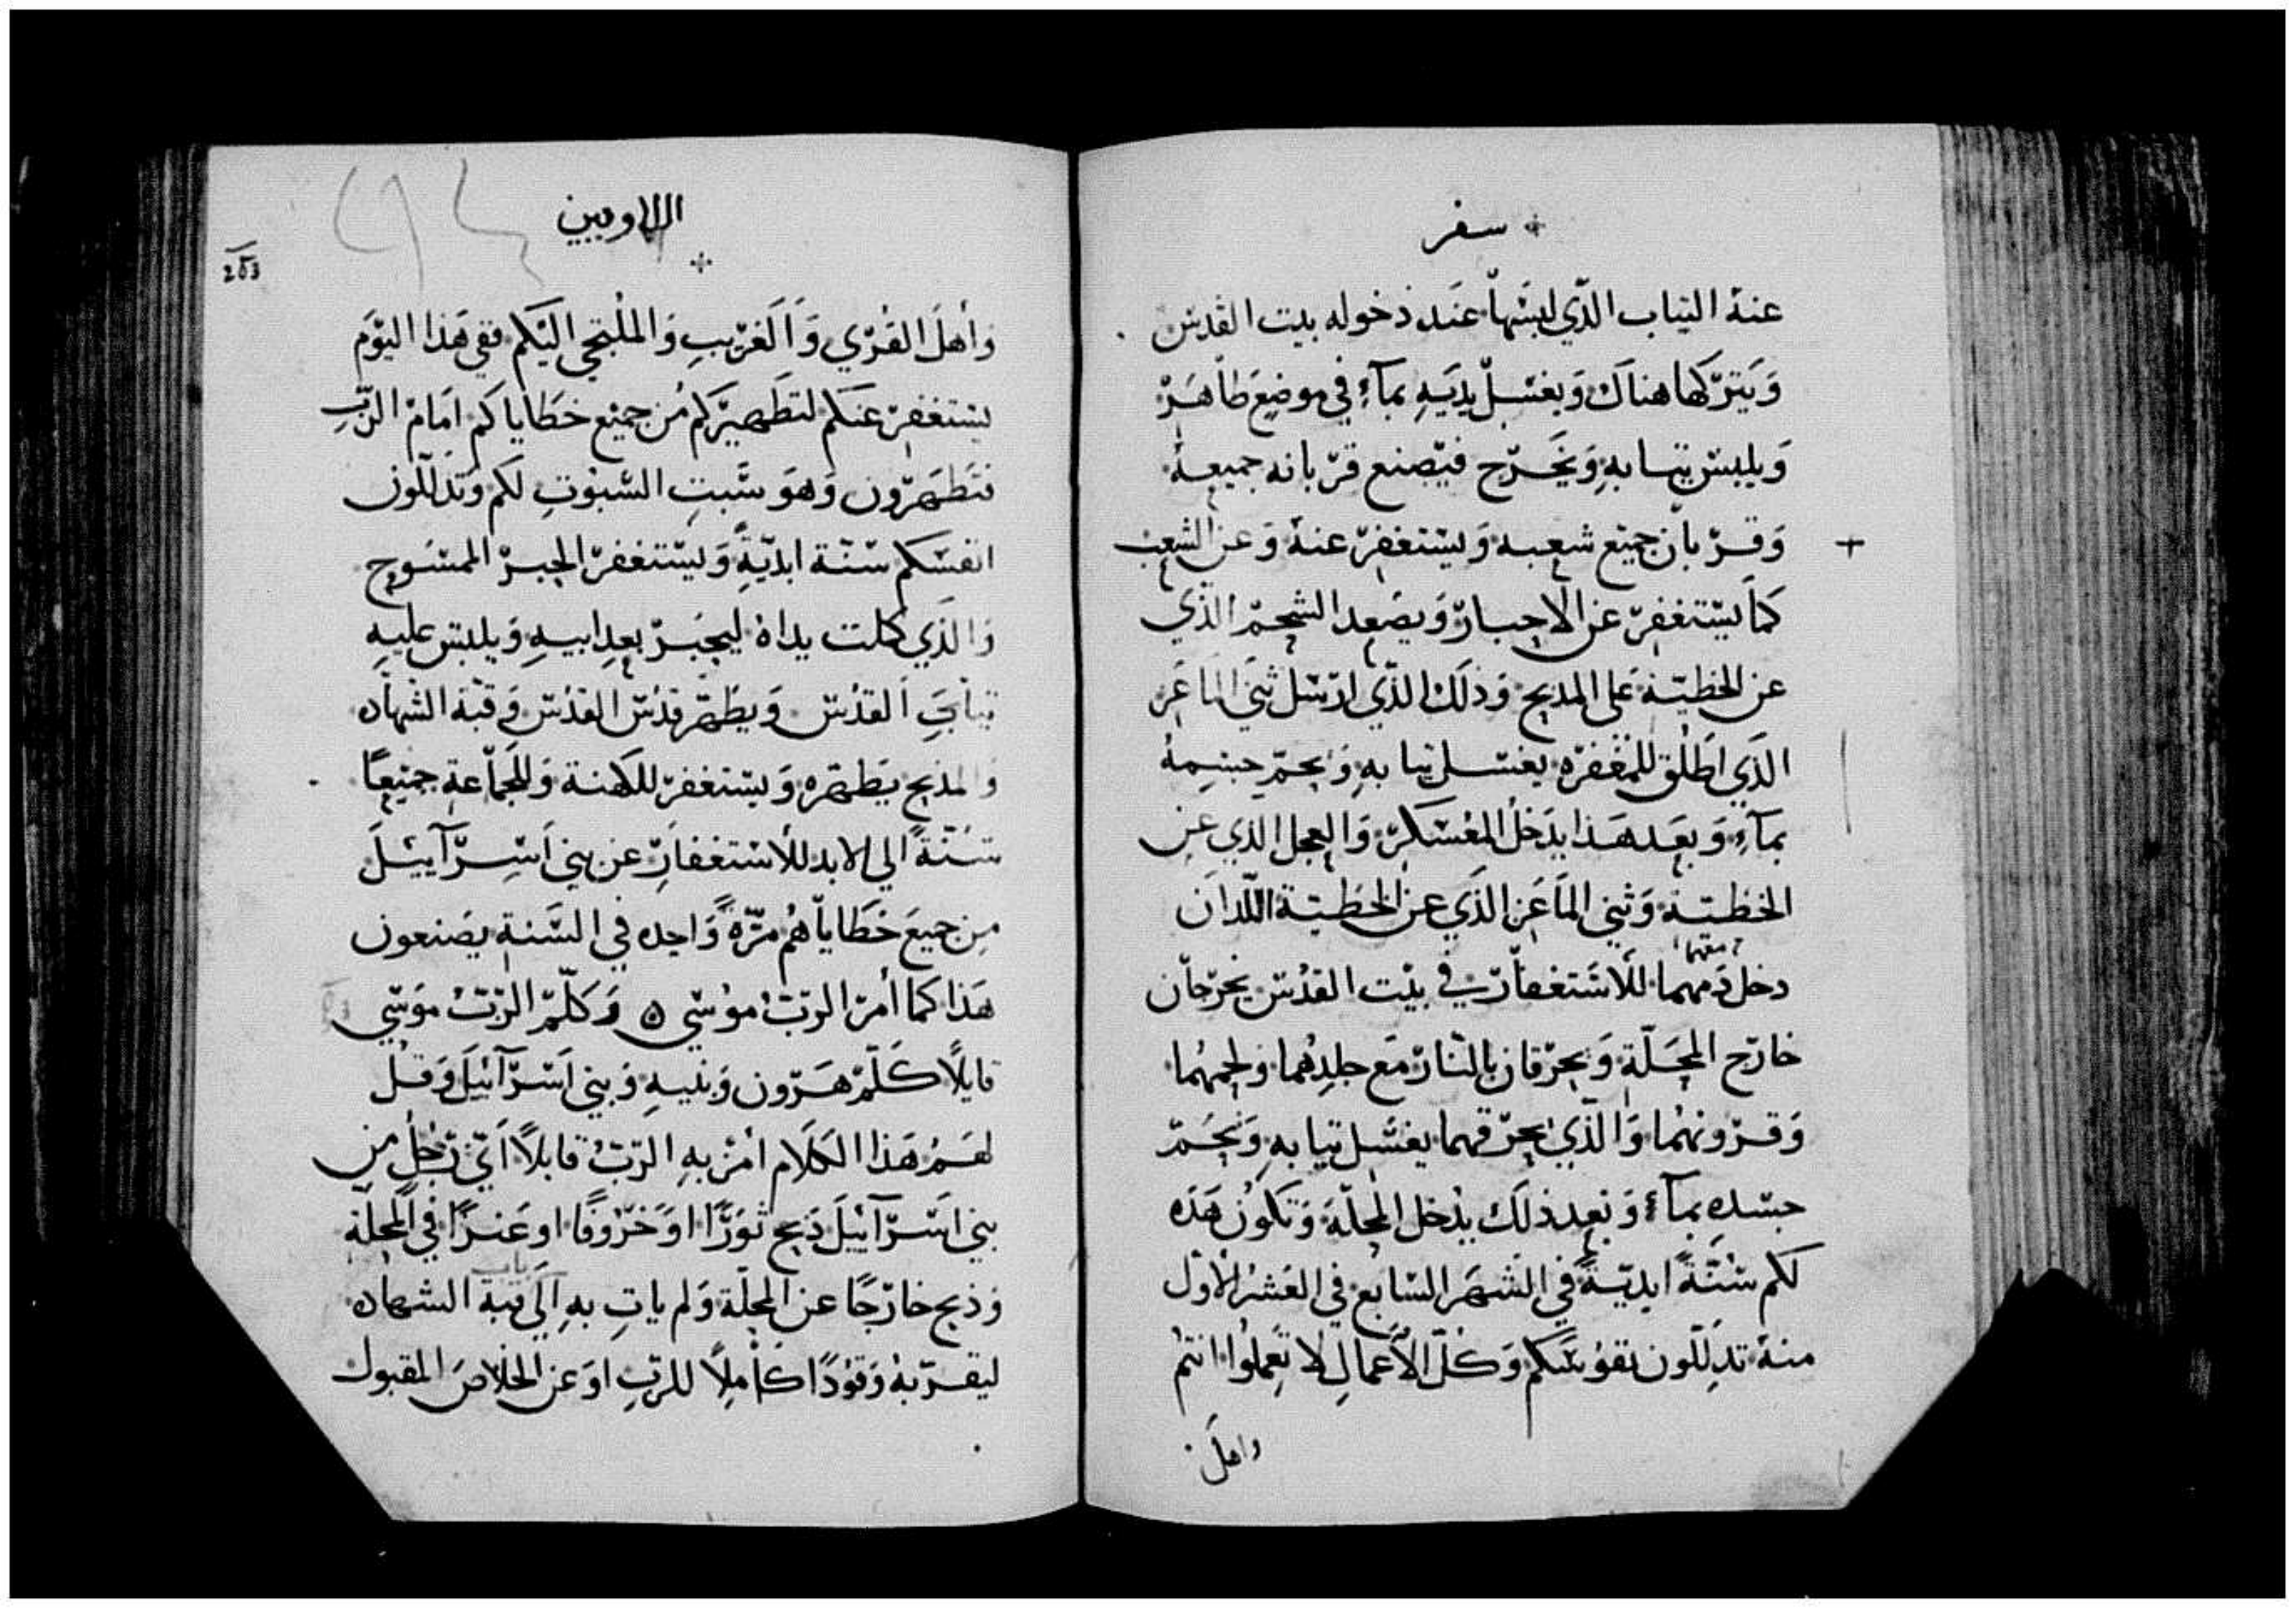 سفر
عنهُ الثياب الذّي لبسَها عنَد دخوله بيت القدسَ
وَيَترَكها هناكَ وَيغسَل يدَيهِ بمآءٍ في موضعِ طاهَرَ
وَيلبسَ ثيابهِ وَيَخرَج فيَصنع قرَبانه جميعهُ
وَقرَبان جميَع شعبه وَيسَتغفرَ عنهُ وَعن الشعب
كمَا يسَتغفرَ عن الاحبارَ وَيصَعد الشحمَ الذَي
عن الخطيَة عَلى المدبح وَذلَك الذَي ارسَل ثنَي الماعَز
الذَي اطَلق للمغفرَه يغسَل ثيابهِ وَيحمَ جسِمهُ
بمآءٍ وَبعَد هَذا يدَخل المعُسَكرَ وَالعجل الذي عن
الخطَيَة وَثني المَاعَز الذَي عن الخَطيَة اللَدان
دخل دَمهما للاسَتغفارَ في بيَت القدُسَ يخرَجان
معهما
خارَج المحَلَة وَيحرَقان بالنَارَ مَع جلدِهُما وَلحمهُما
وَقرَونهُما وَالذَي يحرَقهما يغسَل ثيابهِ وَيحَمَ
جسَدهِ بمآءٍ وَبَعد ذلَك يدُخل المحلَة وَتكونُ هَذه
لكم سُنَةً ابديَةً في الشهَر السَابع في العَشرُ الاوَل
منهُ تذِللَون نفوسَكم وَكلَ الاَعمالِ لا تَعِملُوا انتمُ
واهلَ
اللاويين
203
وَأهلَ القرَي وَالَغرَيبِ وَالملُتجي اليَكم ففي هَذا اليوَم
يسَتغفرَ عنَكم لتطَهيرَكم من جميَع خطَاياكم امَامَ الرَبِ
فتَطهَرَون وَهوَ سَبتِ السَبوُتِ لكم وَتذَللَون
انفسَكم سَنَة ابديَةً وَيسَتغفرَ الحبرَ الممسَوح
وَالذَي كملت يداهُ ليحبَرَ بعدِ ابيهِ وَيلبسَ عليهِ
ثيابَ القدُسَ وَيطَهرَ قدُسَ القدُسَ وَقبَة الشهَاده
وَالمذبح يطَهرَه وَيسَتغفرَ للكهنة وَللجمَاعة جميَعاً
سَنُنَةً الي الابد للأسَتغفارِ عن بني اَسِرَآييَلَ
من جميعَ خَطَاياَهُم مرَةً وَاحده في السَنة يصَنعون
هَذا كما أمرَ الربَ موُسَي ه وَكلَمَ الربَ موَسَي
قايلاً كلَمَ هَرَون وَبنيهِ وَبني اَسَرَآئيلَ وَقل
لهمُ هَذا الكَلام امرَ بهِ الربَ قايلاً اَيَ رَجُلٍ من
بني اسَرَآئيلَ ذبح ثوَرًا اوَ خَرَوفًا او عَنزًا في المحلَة
وَذبح خارَجًا عن المحلَة وَلم ياتِ بهِ الَي قبَة الشهاده
باب
ليقرَبهُ وَقوُدًا كامِلاً للربِ اوَ عَن الخلاصَ المقبول